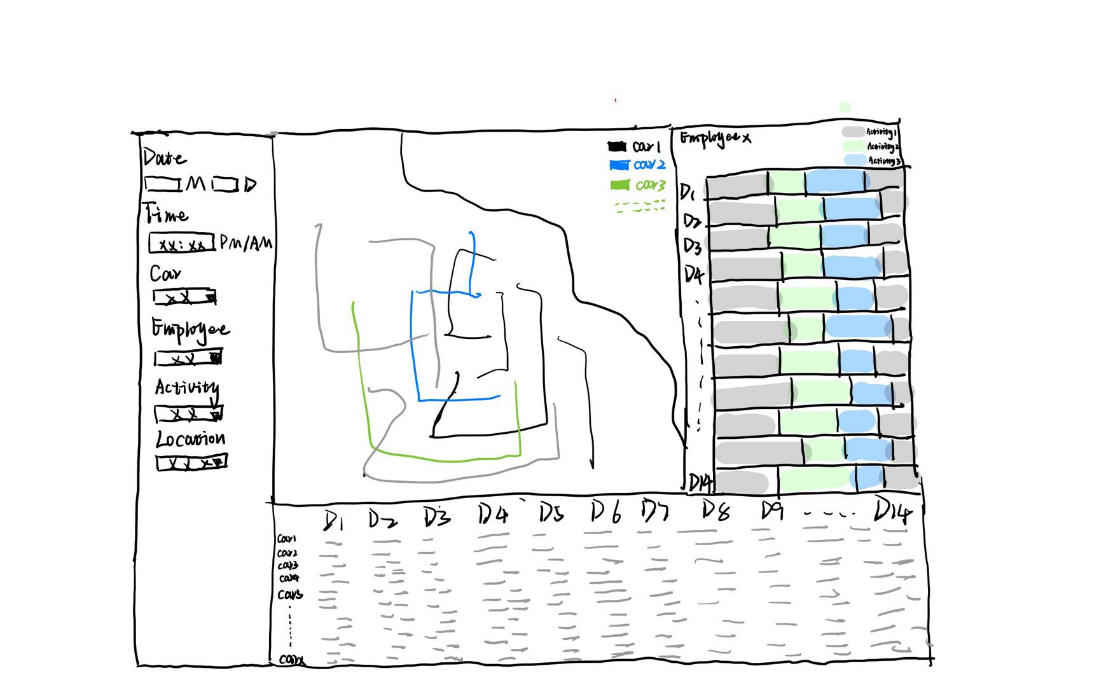 Date
M D
Time
xx:xx PM/AM
Car
xx
Employee
xx
Activity
xx
Location
xxx
car1
car2
car3
Employee x
Activity1
Activity2
Activity3
D1
D2
D3
D4
D14
D1 D2 D3 D4 D5 D6 D7 D8 D9 .... D14
car1
car2
car3
car4
car5